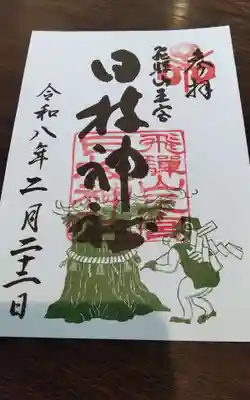 奉拝
飛騨山王宮
日枝神社
飛騨山王宮
日枝神社
令和八年二月二十二日